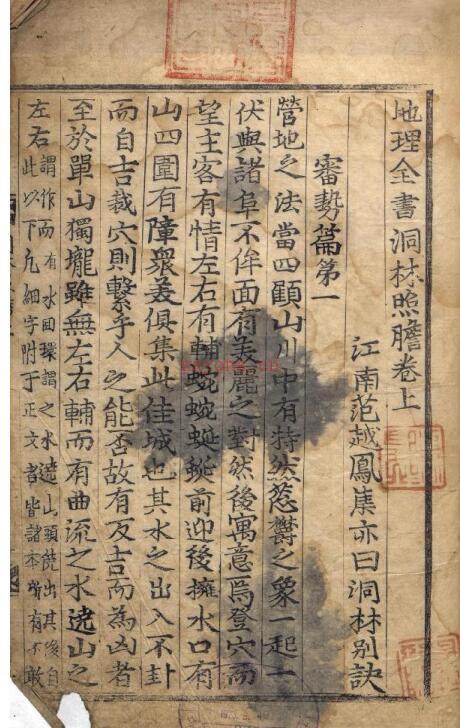 地理全書洞林照膽卷上
江南范越鳳集亦曰洞林別訣
審勢篇第一
營地之法當四顧山川中有特然葱鬱之象一起一
伏與諸阜不侔面有羙麗之對然後寓意焉登穴而
望主客有情左右有輔蜿蜿蜒蜒前迎後擁水口有
山四圍有障衆羙俱集此佳城也其水之出入不卦
而自吉裁穴則繫乎人之能否故有反吉而為凶者
至於單山獨壠雖無左右輔而有曲流之水遶山之
左右
謂作而有水回環謂之水遶山頭饒出其後自
此以下凡細字附于正文者皆諸本所有不敢
nayona.cn